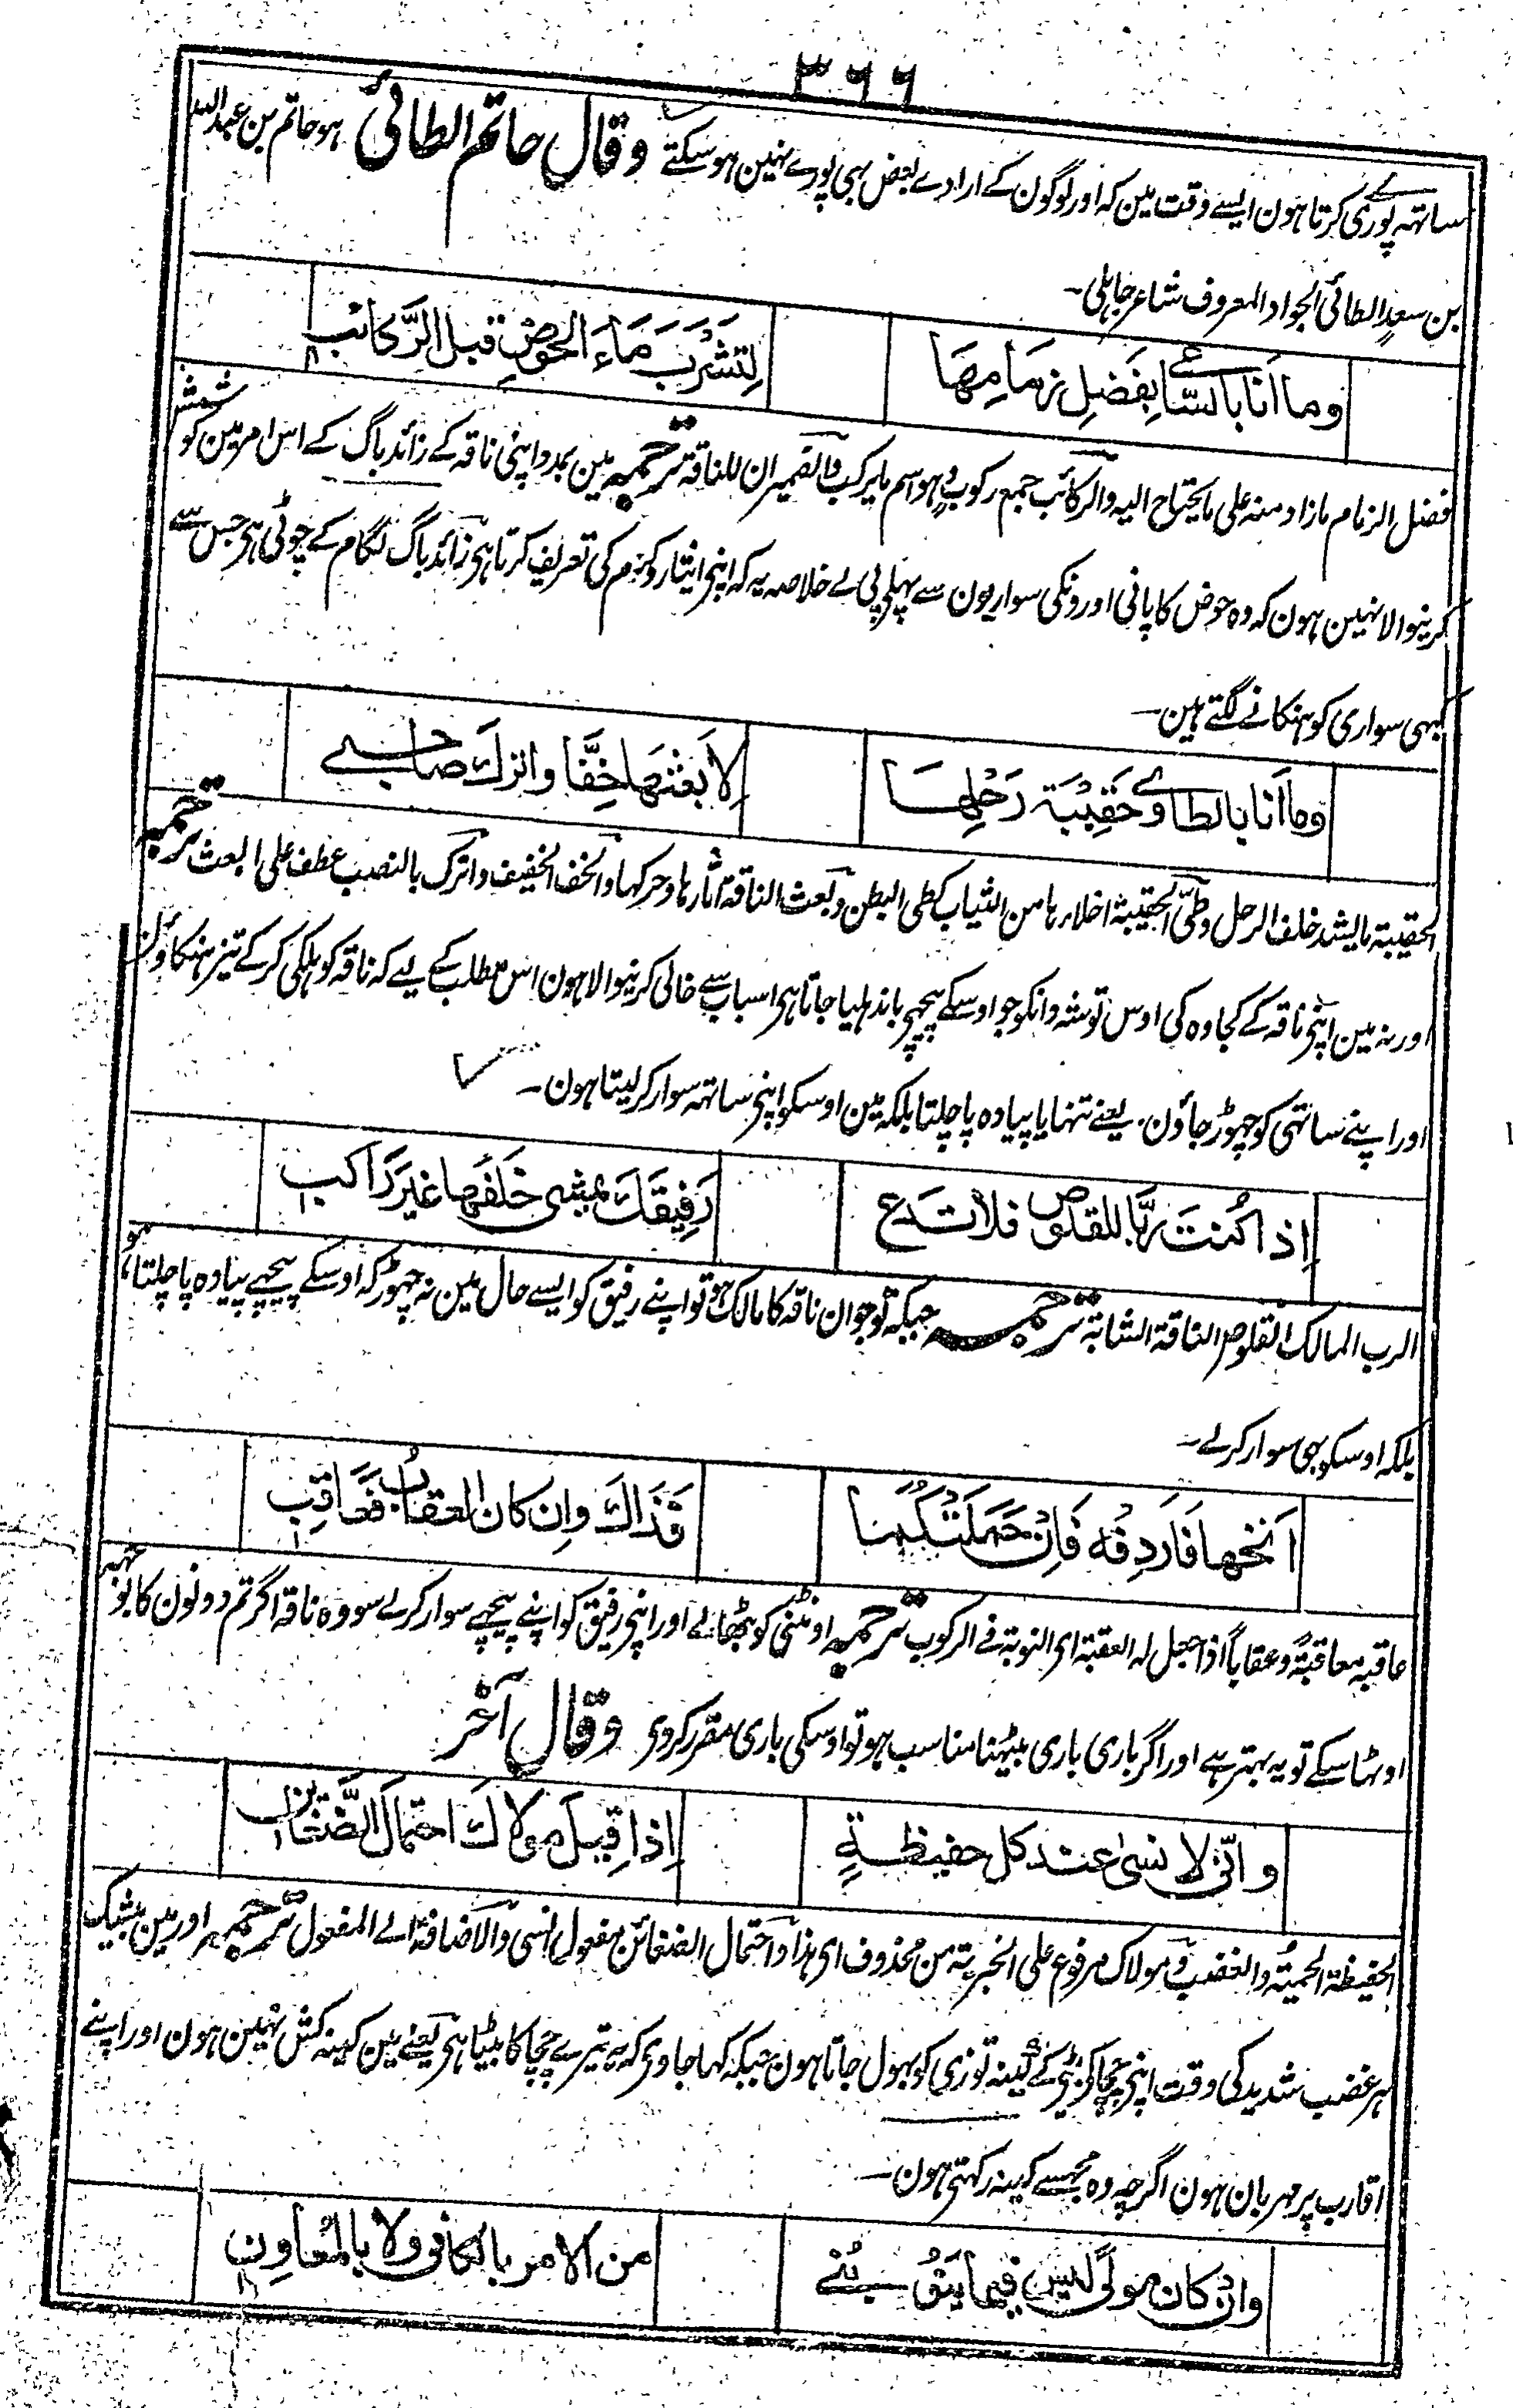 ۳۶۶
ساتهہ پوری کرتا ہون ایسے وقت مین کہ اور لوگون کے ارادے بعض بہی پورے نہین ہو سکتے وقال حاتم الطائی ہو حاتم بن عبد اللہ
بن سعد الطائی الجواد المعروف شاعر جاہلی۔
وما أنا بالساعي بفضل زمامها لتشرب ماء الحوض قبل الركائب
فضل الزمام ما زاد منہ علی ما یحتاج الیہ والرکائب جمع رکوب وہو اسم ما یرکب والضمیران للناقۃ ترجمہ مین بمدد اپنی ناقہ کے زائد باگ کے اس امر مین کوشش
کرنیوالا نہین ہون کہ وہ حوض کا پانی اورونکی سواریون سے پہلے پی لے خلاصہ یہ کہ اپنی ایثار و کرم کی تعریف کرتا ہی زائد باگ لگام کے چوٹی ہی جس سے
کبہی سواری کو ہنکانے لگتے ہین۔
وما أنا بالطاوي حقيبة رحلها لابعثها خفا واترك صاحبي
الحقیبۃ ما یشد خلف الرحل وطی الحقیبۃ اخلارہا من الثیاب کطی البطن وبعث الناقۃ اثارہا وحرکہا والخف الخفیف واترک بالنصب عطف علی ابعث ترجمہ
اور نہ مین اپنی ناقہ کے کجاوہ کی اوس توشہ دانکو جو اوسکے پیچہے باندہ لیا جاتا ہی اسباب سے خالی کرنیوالا ہون اس مطلب کے لیے کہ ناقہ کو ہلکی کر کے تیز ہنکاؤن
اور اپنے ساتہی کو چہوڑ جاؤن یعنے تنہا یا پیادہ پا چلتا بلکہ مین اوسکو اپنی ساتهہ سوار کر لیتا ہون۔
إذا كنت ربا للقلوص فلا تدع رفيقك يمشي خلفها غير راكب
الرب المالک القلوص الناقۃ الشابۃ ترجمہ جبکہ تو جوان ناقہ کا مالک ہو تو اپنے رفیق کو ایسے حال مین نہ چہوڑ کہ اوسکے پیچہے پیادہ پا چلتا ہو
بلکہ اوسکو بہی سوار کر لے۔
أنخها فأردفه فإن حملتكما فذاك وإن كان العقاب فعاقب
عاقبہ معاقبۃ وعقابا اذا جعل لہ العقبۃ ای النوبۃ فی الرکوب ترجمہ اونٹنی کو بٹھالے اور اپنی رفیق کو اپنے پیچہے سوار کر لے سو وہ ناقہ اگر تم دونون کا بوجہہ
اوٹہا سکے تو یہ بہتر ہے اور اگر باری باری بیٹہنا مناسب ہو تو اوسکی باری مقرر کر دی وقال آخر
واني لا نسى عند كل حفيظة إذا قيل مولاك احتمال الضغائن
الحفیظۃ الحمیۃ والغضب ومولاک مرفوع علی الخبریۃ من محذوف ای ہذا واحتمال الضغائن مفعول انسی والاضافۃ الے المفعول ترجمہ اور مین بیشک
ہر غضب شدید کی وقت اپنی چچا کی بیٹی کے کینہ توزی کو بہول جاتا ہون جبکہ کہا جاوی کہ یہ تیرے چچا کا بیٹا ہی یعنے مین کینہ کش نہین ہون اور اپنے
اقارب پر مہربان ہون اگرچہ وہ مجہسے کینہ رکہتی ہون۔
وإن كان مولى ليس فيما ينوبني من الامر بالكافي ولا بالمعاون